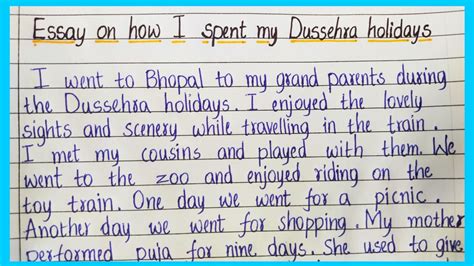 Essay on how I spent my Dussehra holidays
I went to Bhopal to my grand parents during
the Dussehra holidays. I enjoyed the lovely
sights and scenery while travelling in the train.
I met my cousins and played with them. We
went to the zoo and enjoyed riding on the
toy train. One day we went for a picnic.
Another day we went for shopping. My mother
performed puja for nine days. She used to give